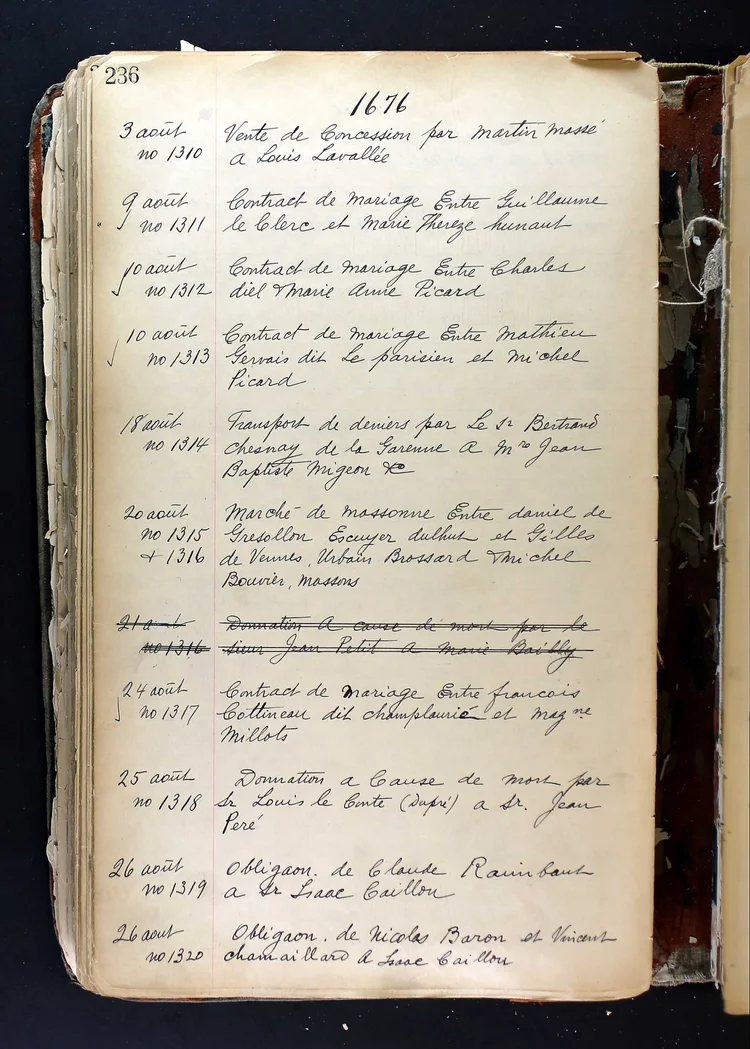 236
1676
3 août Vente de Concession par Martin Massé
no 1310 a Louis Lavallée
9 août Contract de Mariage Entre Guillaume
no 1311 le Clerc et Marie Thereze hunaut
10 août Contract de Mariage Entre Charles
no 1312 diel & Marie Anne Picard
10 août Contract de Mariage Entre Mathieu
no 1313 Gervais dit Le parisien et Michel
Picard
18 août Transport de deniers par Le Sr Bertrand
no 1314 Chesnay de la Garenne A Mre Jean
Baptiste Migeon &c
20 août Marché de Massonne Entre daniel de
no 1315 Gresollon Escuyer dulhut et Gilles
& 1316 de Vennes, Urbain Brossard & Michel
Bouvier, Massons
21 Donnation A cause de mort par le
no 1316 sieur Jean Petit A Marie Bailly
24 août Contract de Mariage Entre francois
no 1317 Cottineau dit Champlaurié et Magne
Millots
25 août Donnation a Cause de Mort par
no 1318 Sr Louis le Conte (Dupré) a Sr. Jean
Peré
26 août Obligaon. de Claude Raimbaut
no 1319 a Sr Isaac Caillou
26 aout Obligaon. de Nicolas Baron et Vincent
no 1320 chamaillard A Isaac Caillou